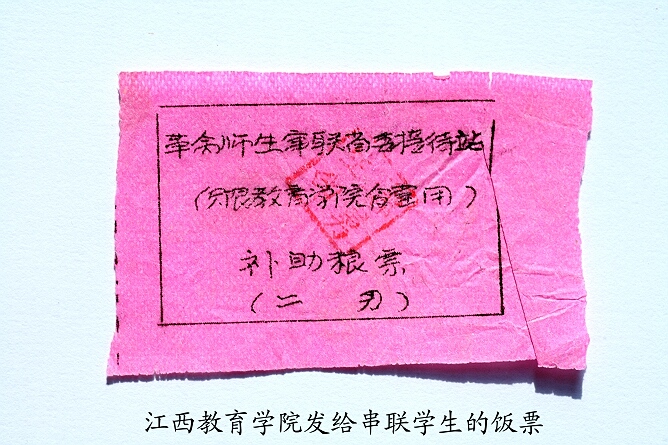 革命师生串联省委接待站
(限教育学院食堂用)
补助粮票
(二 刃)
江西教育学院发给串联学生的饭票